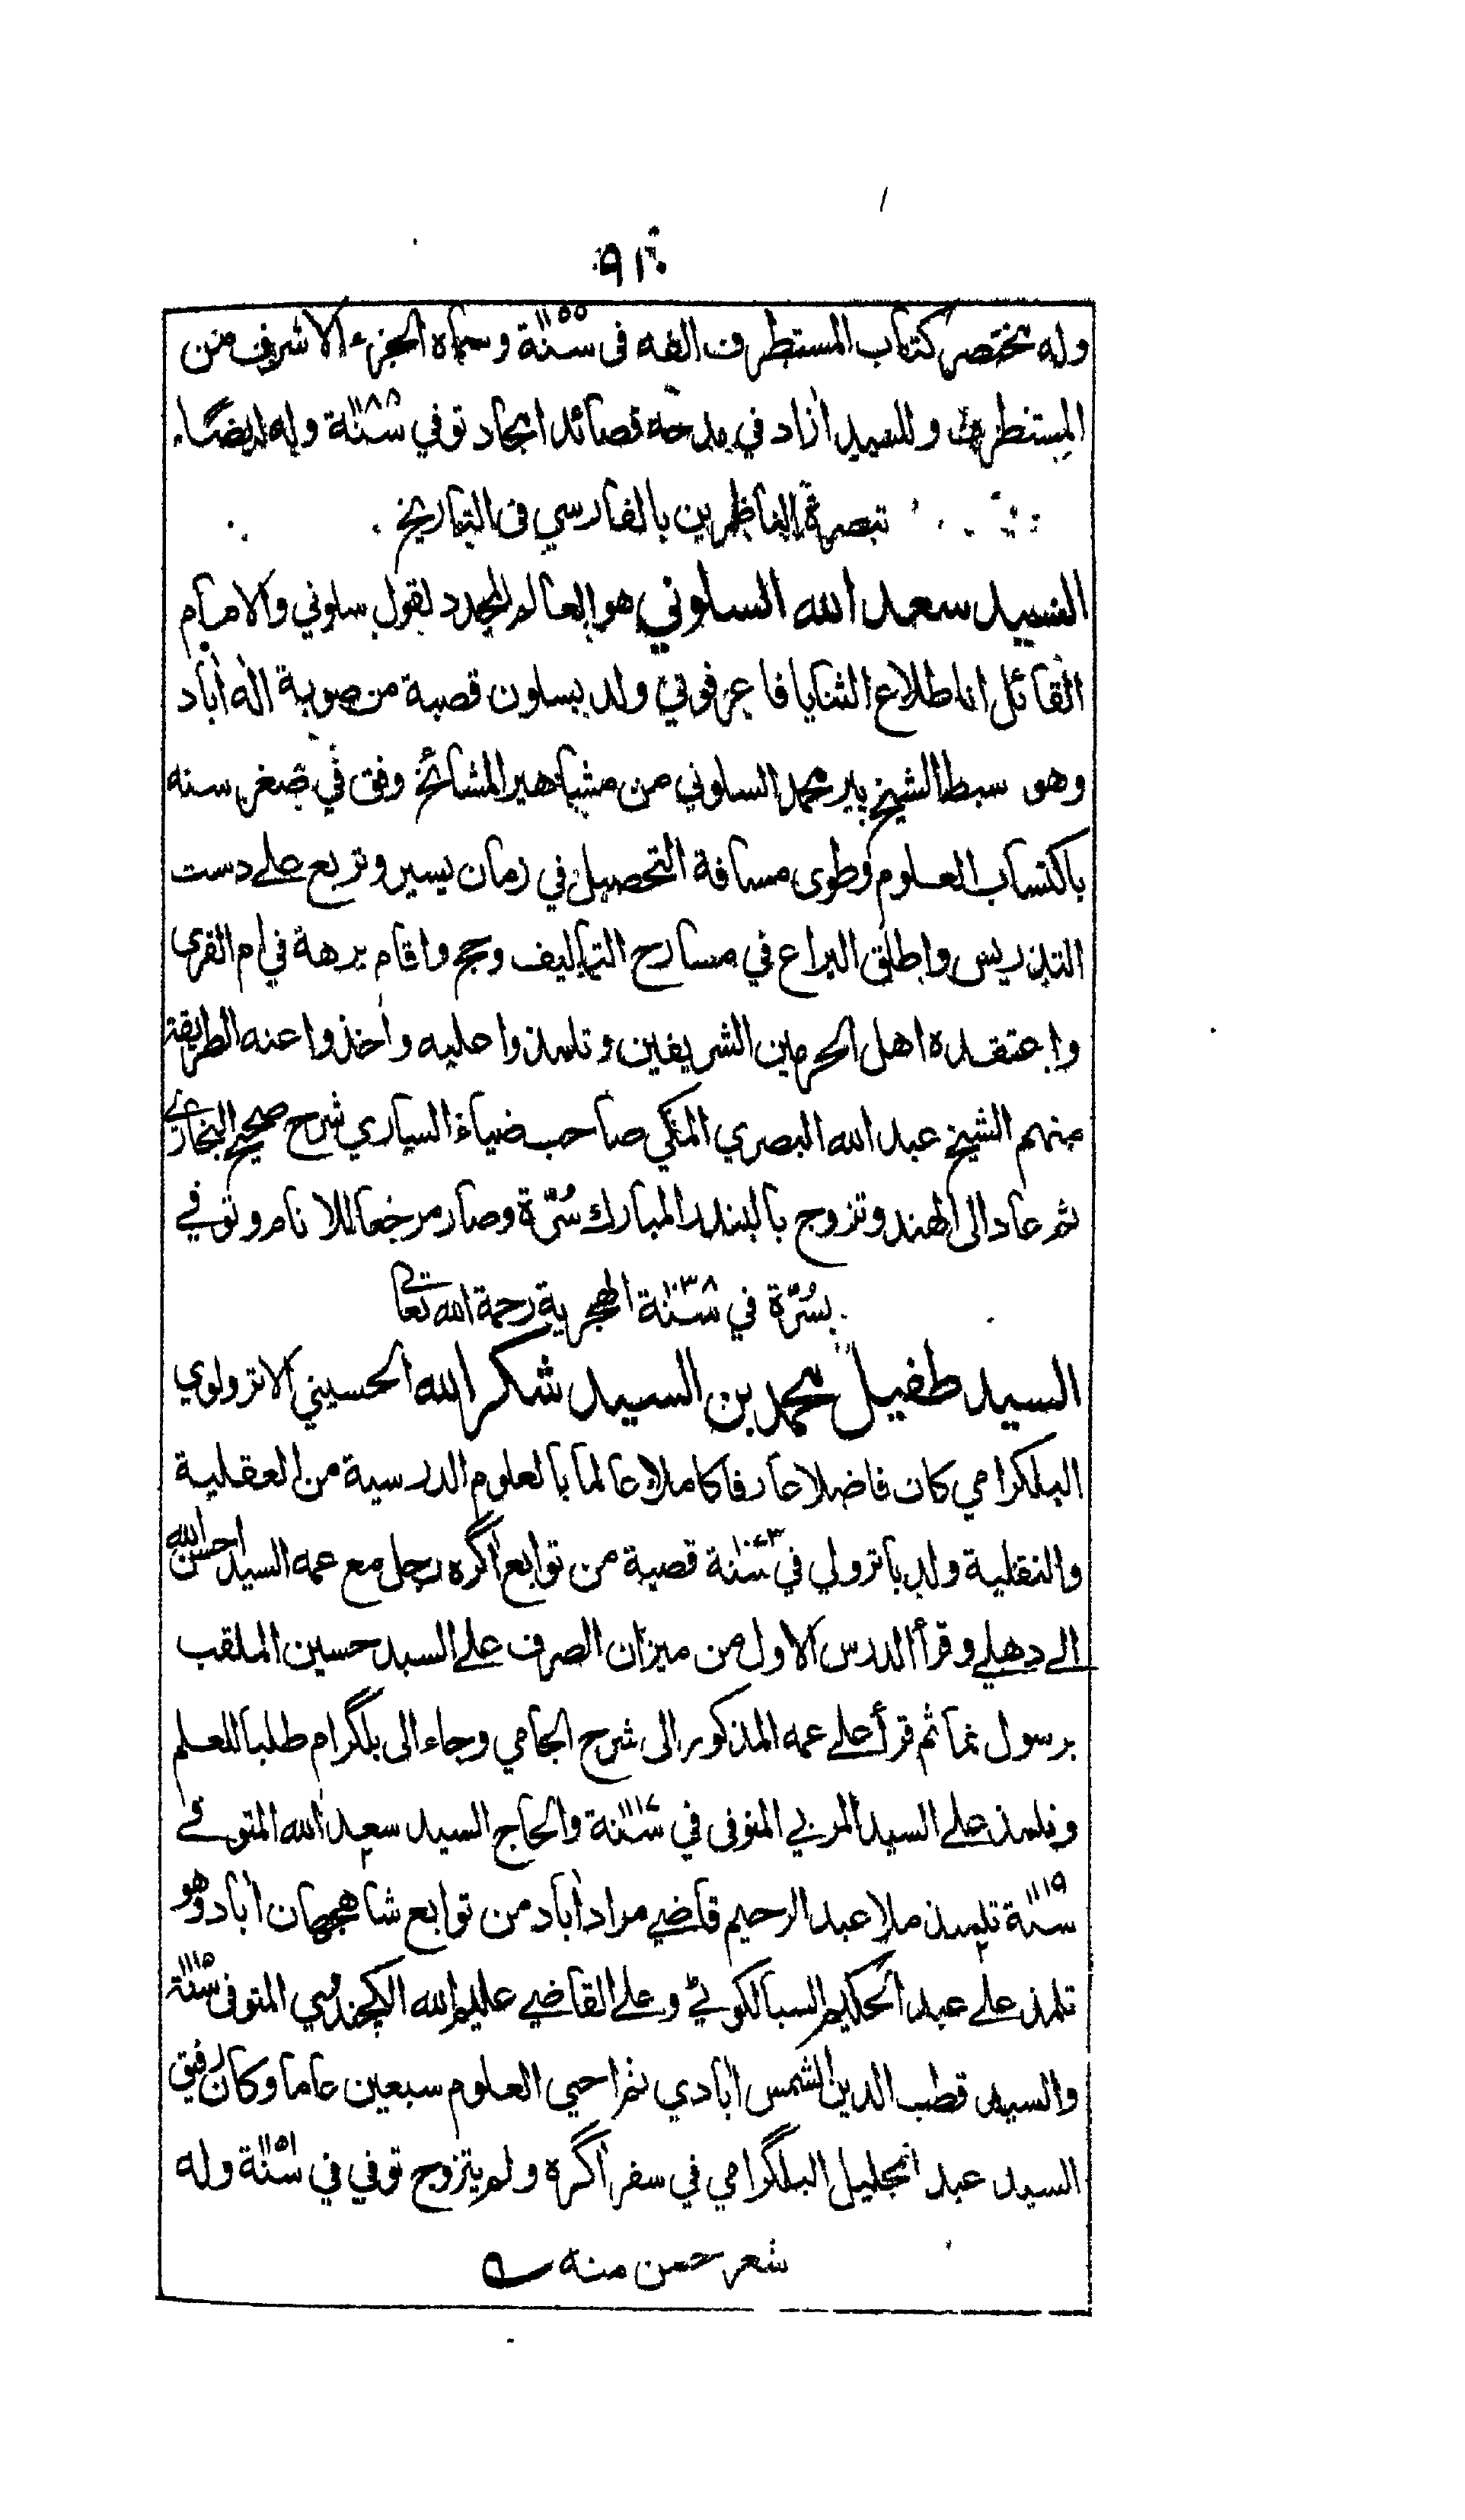 ٩١٠
وله مختصر كتاب المستطرف الفه فى سنة ١١٥٥ وسماه الجزء الاشرف من
المستطرف وللسيد ازاد في مدحه قصائد اجاد توفي سنة ١١٨٨ وله ايضا
تبصرة الناظرين بالفارسي فى التاريخ
السيد سعد الله السلوني هو العالم المجدد لقول سلوني والامام
القائل انا طلاع الثنايا فاعرفوني ولد بسلون قصبة من صوبة اله آباد
وهو سبط الشيخ پير محمد السلوني من مشاهير المشائخ وفق في صغر سنه
باكتساب العلوم وطوى مسافة التحصيل في زمان يسير وتربع على دست
التدريس واطلق اليراع في مسارح التاليف وحج واقام برهة في ام القرى
واعتقده اهل الحرمين الشريفين وتلمذوا عليه واخذوا عنه الطريقة
منهم الشيخ عبد الله البصري المكي صاحب ضياء الساري شرح صحيح البخارى
ثم عاد الى الهند وتزوج بالبندر المبارك سُرّة وصار مرجعا للانام وتوفي
بسُرّة في سنة ١٠٣٨ الهجرية رحمة الله تعالى
السيد طفيل محمد بن السيد شكر الله الحسيني الاترولوي
البلكرامي كان فاضلا عارفا كاملا عالما بالعلوم الدرسية من العقلية
والنقلية ولد باترولي في سنة ١٠٤٣ قصبة من توابع اگره رحل مع عمه السيد احسن الله
الى دهلي وقرأ الدرس الاول من ميزان الصرف على السيد حسين الملقب
برسول نما ثم قرأ على عمه المذكور الى شرح الجامي وجاء الى بلگرام طلبا للعلم
وتلمذ على السيد المربي المتوفى في سنة ١١١٧ والحاج السيد سعد الله المتوفى
سنة ١١١٩ تلميذ ملا عبد الرحيم قاضي مراد آباد من توابع شاهجهان آباد وهو
تلمذ على عبد الحكيم السيالكوٹي وعلى القاضي عليم الله الكچندوي المتوفى سنة ١١١٥
والسيد قطب الدين الشمس آبادي ثم احيى العلوم سبعين عاما وكان رفيق
السيد عبد الجليل البلگرامي في سفر آگره ولم يتزوج توفي في سنة ١١٥١ وله
شعر حسن منه